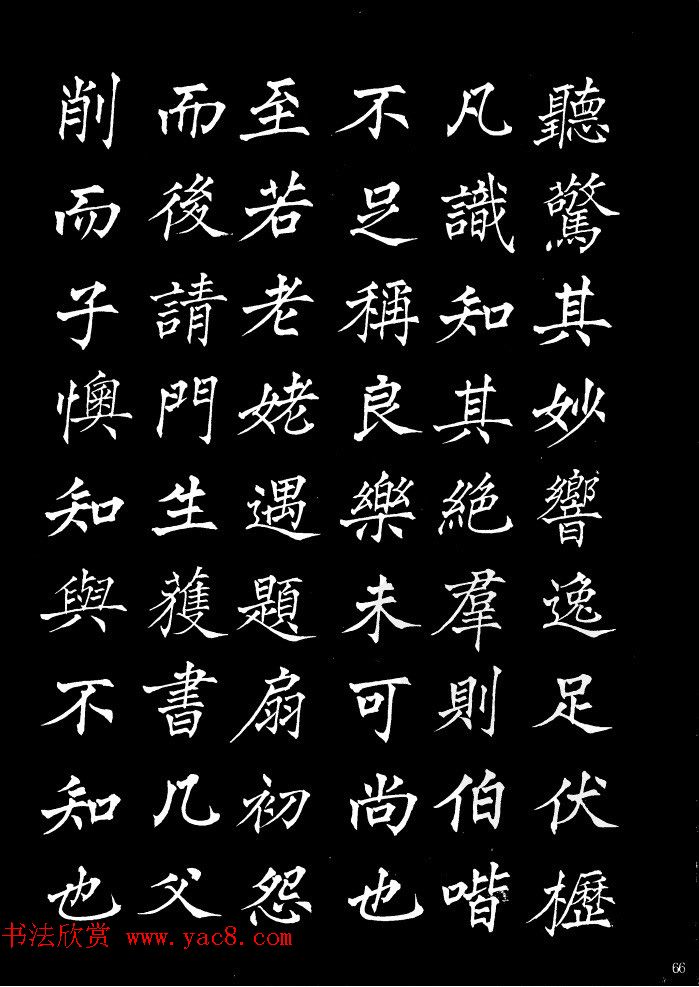 聽驚其妙響逸足伏櫪
凡識知其絕羣則伯喈
不足稱良樂未可尚也
至若老姥遇題扇初怨
而後請門生獲書几父
削而子懊知與不知也
书法欣赏 www.yac8.com
66